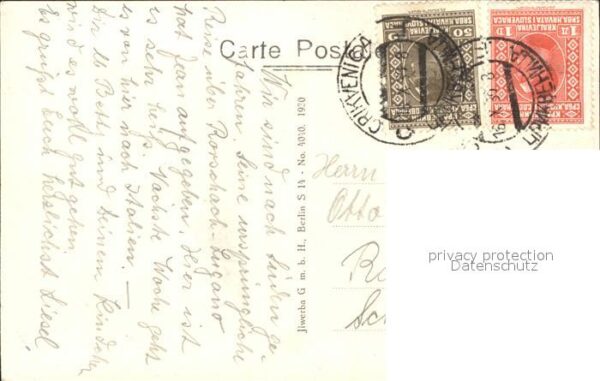 Carte Postale
Wir sind nach Süden ge-
fahren, seine ursprüngliche
Reise über Rorschach Lugano
hat Jean aufgegeben, hier ist
es sehr heiß. Nächste Woche geht
es von hier nach Italien. —
Dir lb. Betty und Deinem Kindchen
wird es wohl gut gehen.
Es grüßt Euch herzlichst Liesel
Jiwerba G. m. b. H., Berlin S 14 - No. 4030. 1920
Herrn
Otto
50
KRALJEVINA
SRBA, HRVATA I SLOVENACA
1 Д
1 D
KRALJEVINA
SRBA, HRVATA I SLOVENACA
CRIKVENICA
ЦРИКВЕНИЦА
privacy protection
Datenschutz